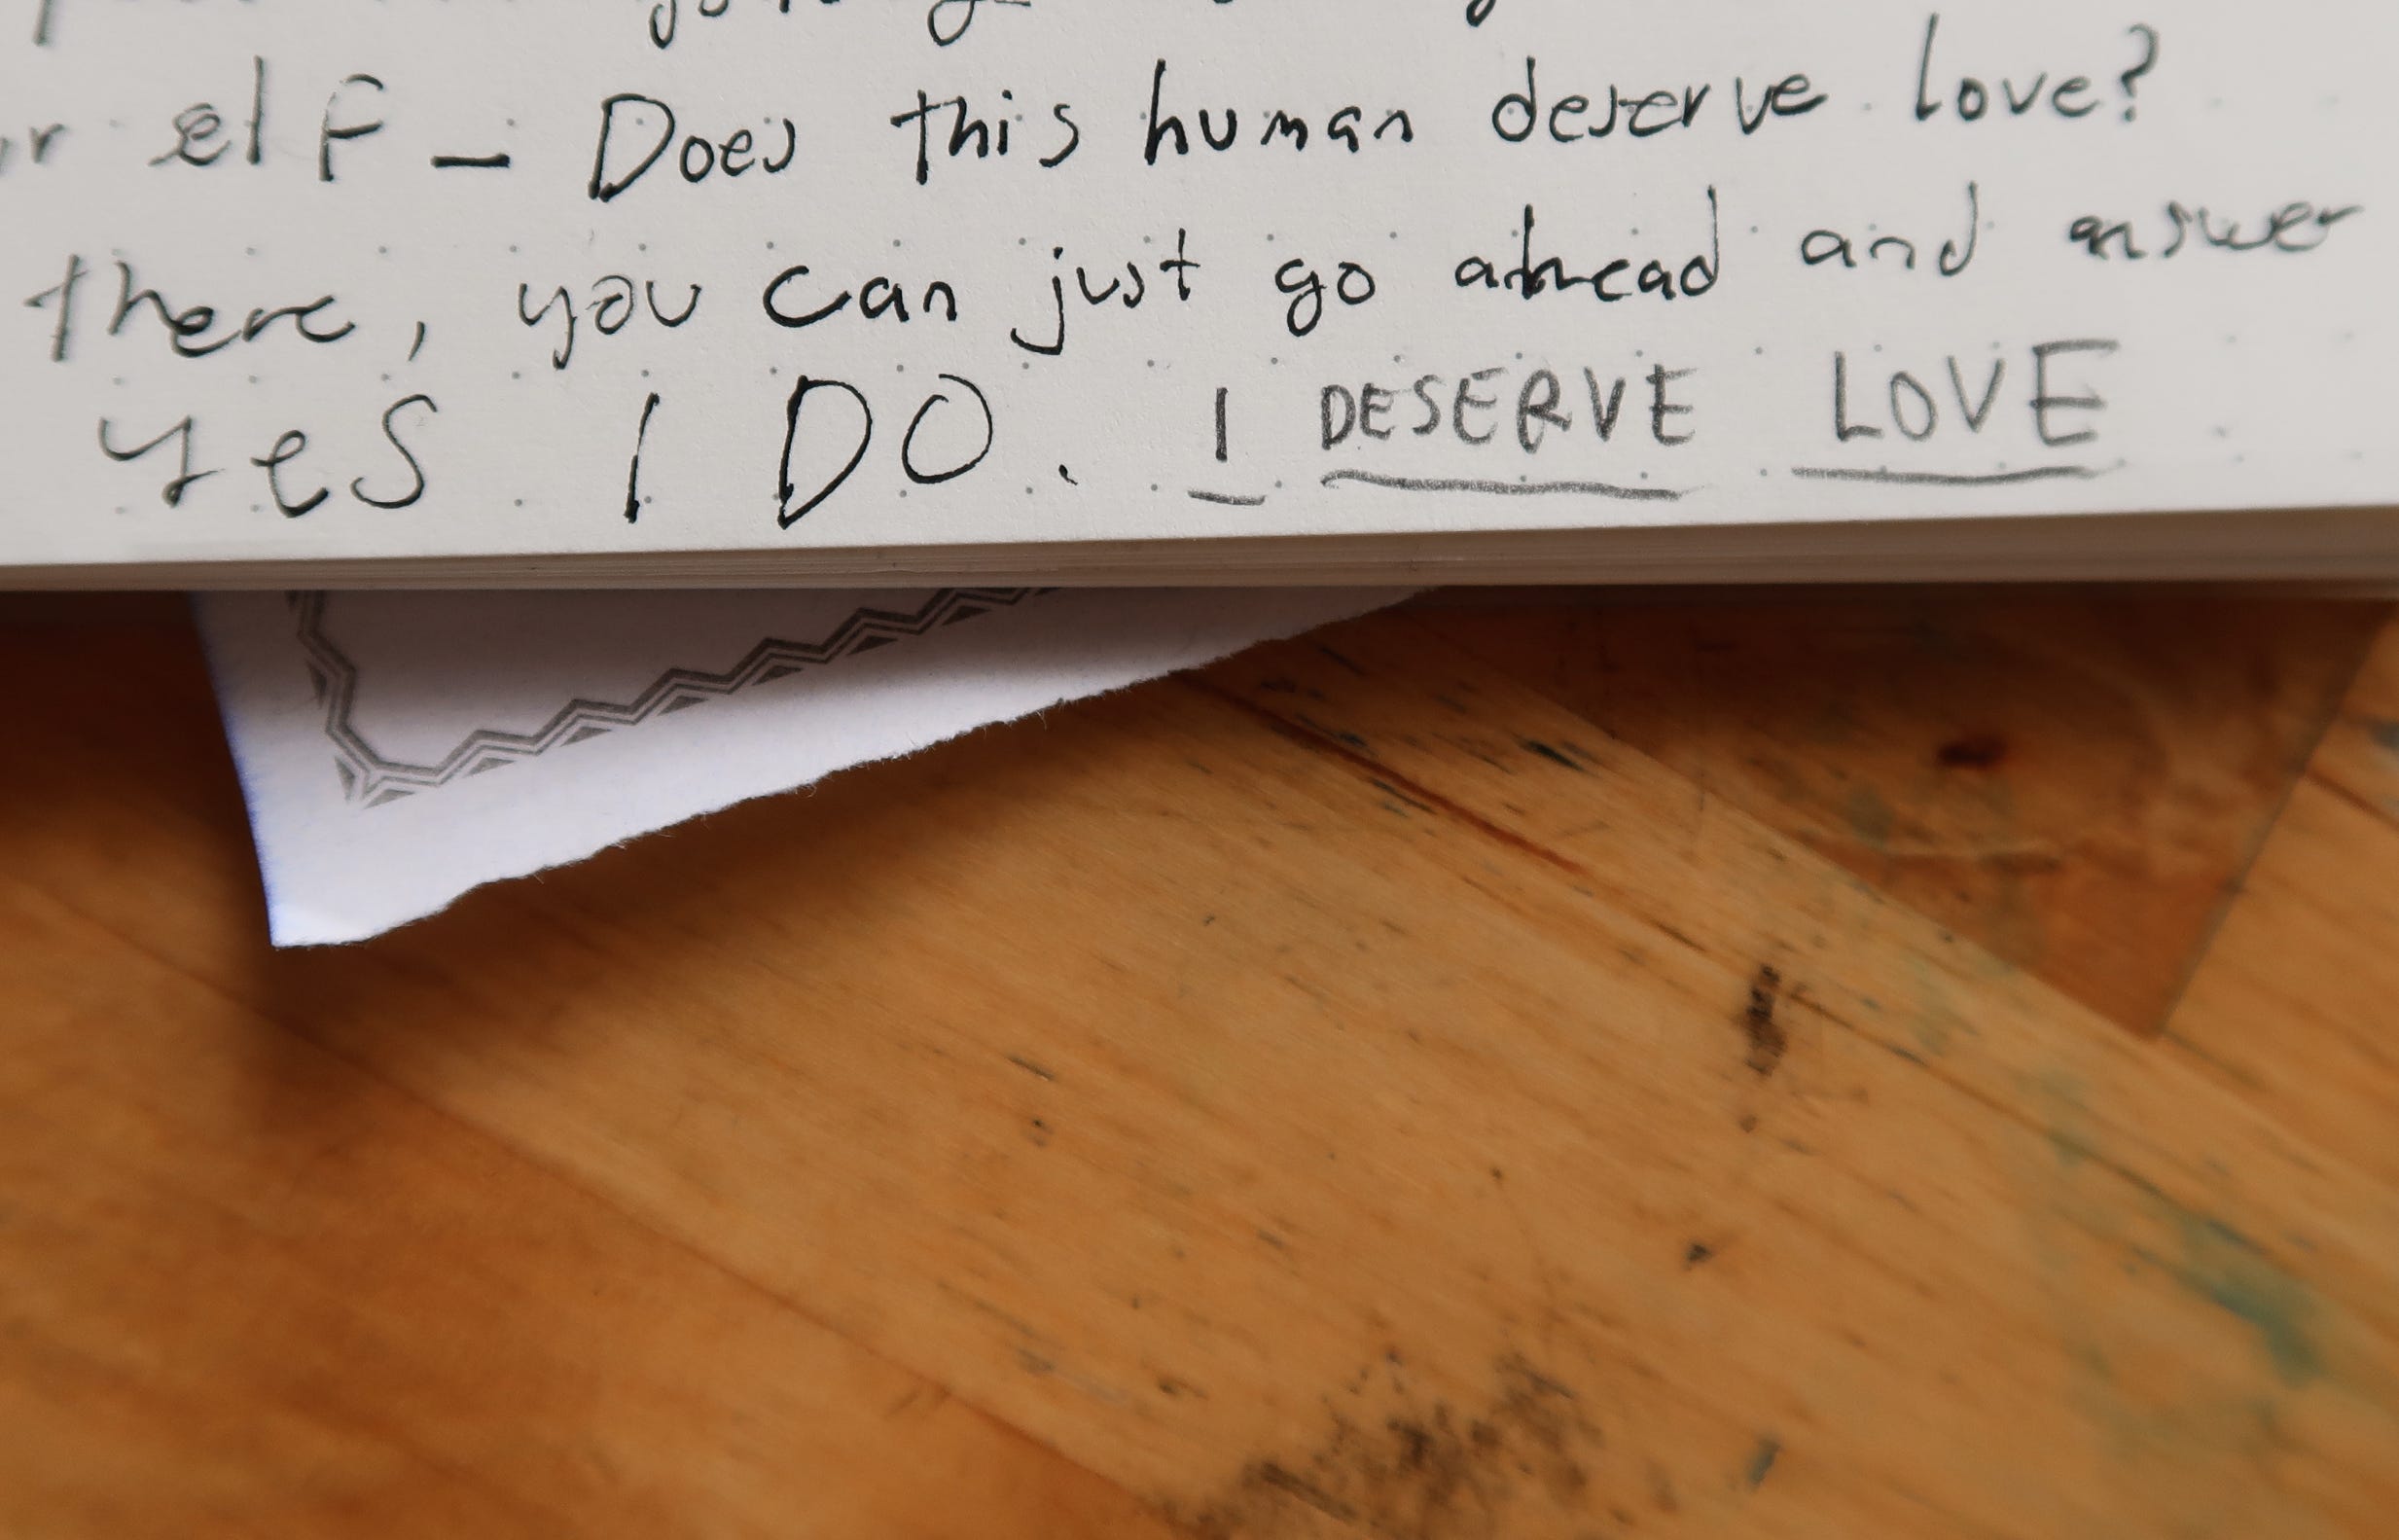 elf - Does this human deserve love?
there, you can just go ahead and answer
Yes I DO. I DESERVE LOVE